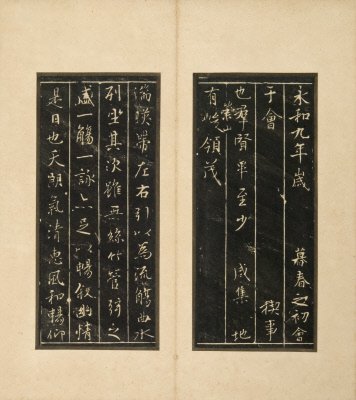 永和九年歲 暮春之初會
于會 稧事
也羣賢畢至少 咸集 地
有崇山峻領茂
湍暎帶左右引以為流觴曲水
列坐其次雖無絲竹管弦之
盛一觴一詠亦足以暢敘幽情
是日也天朗氣清惠風和暢仰